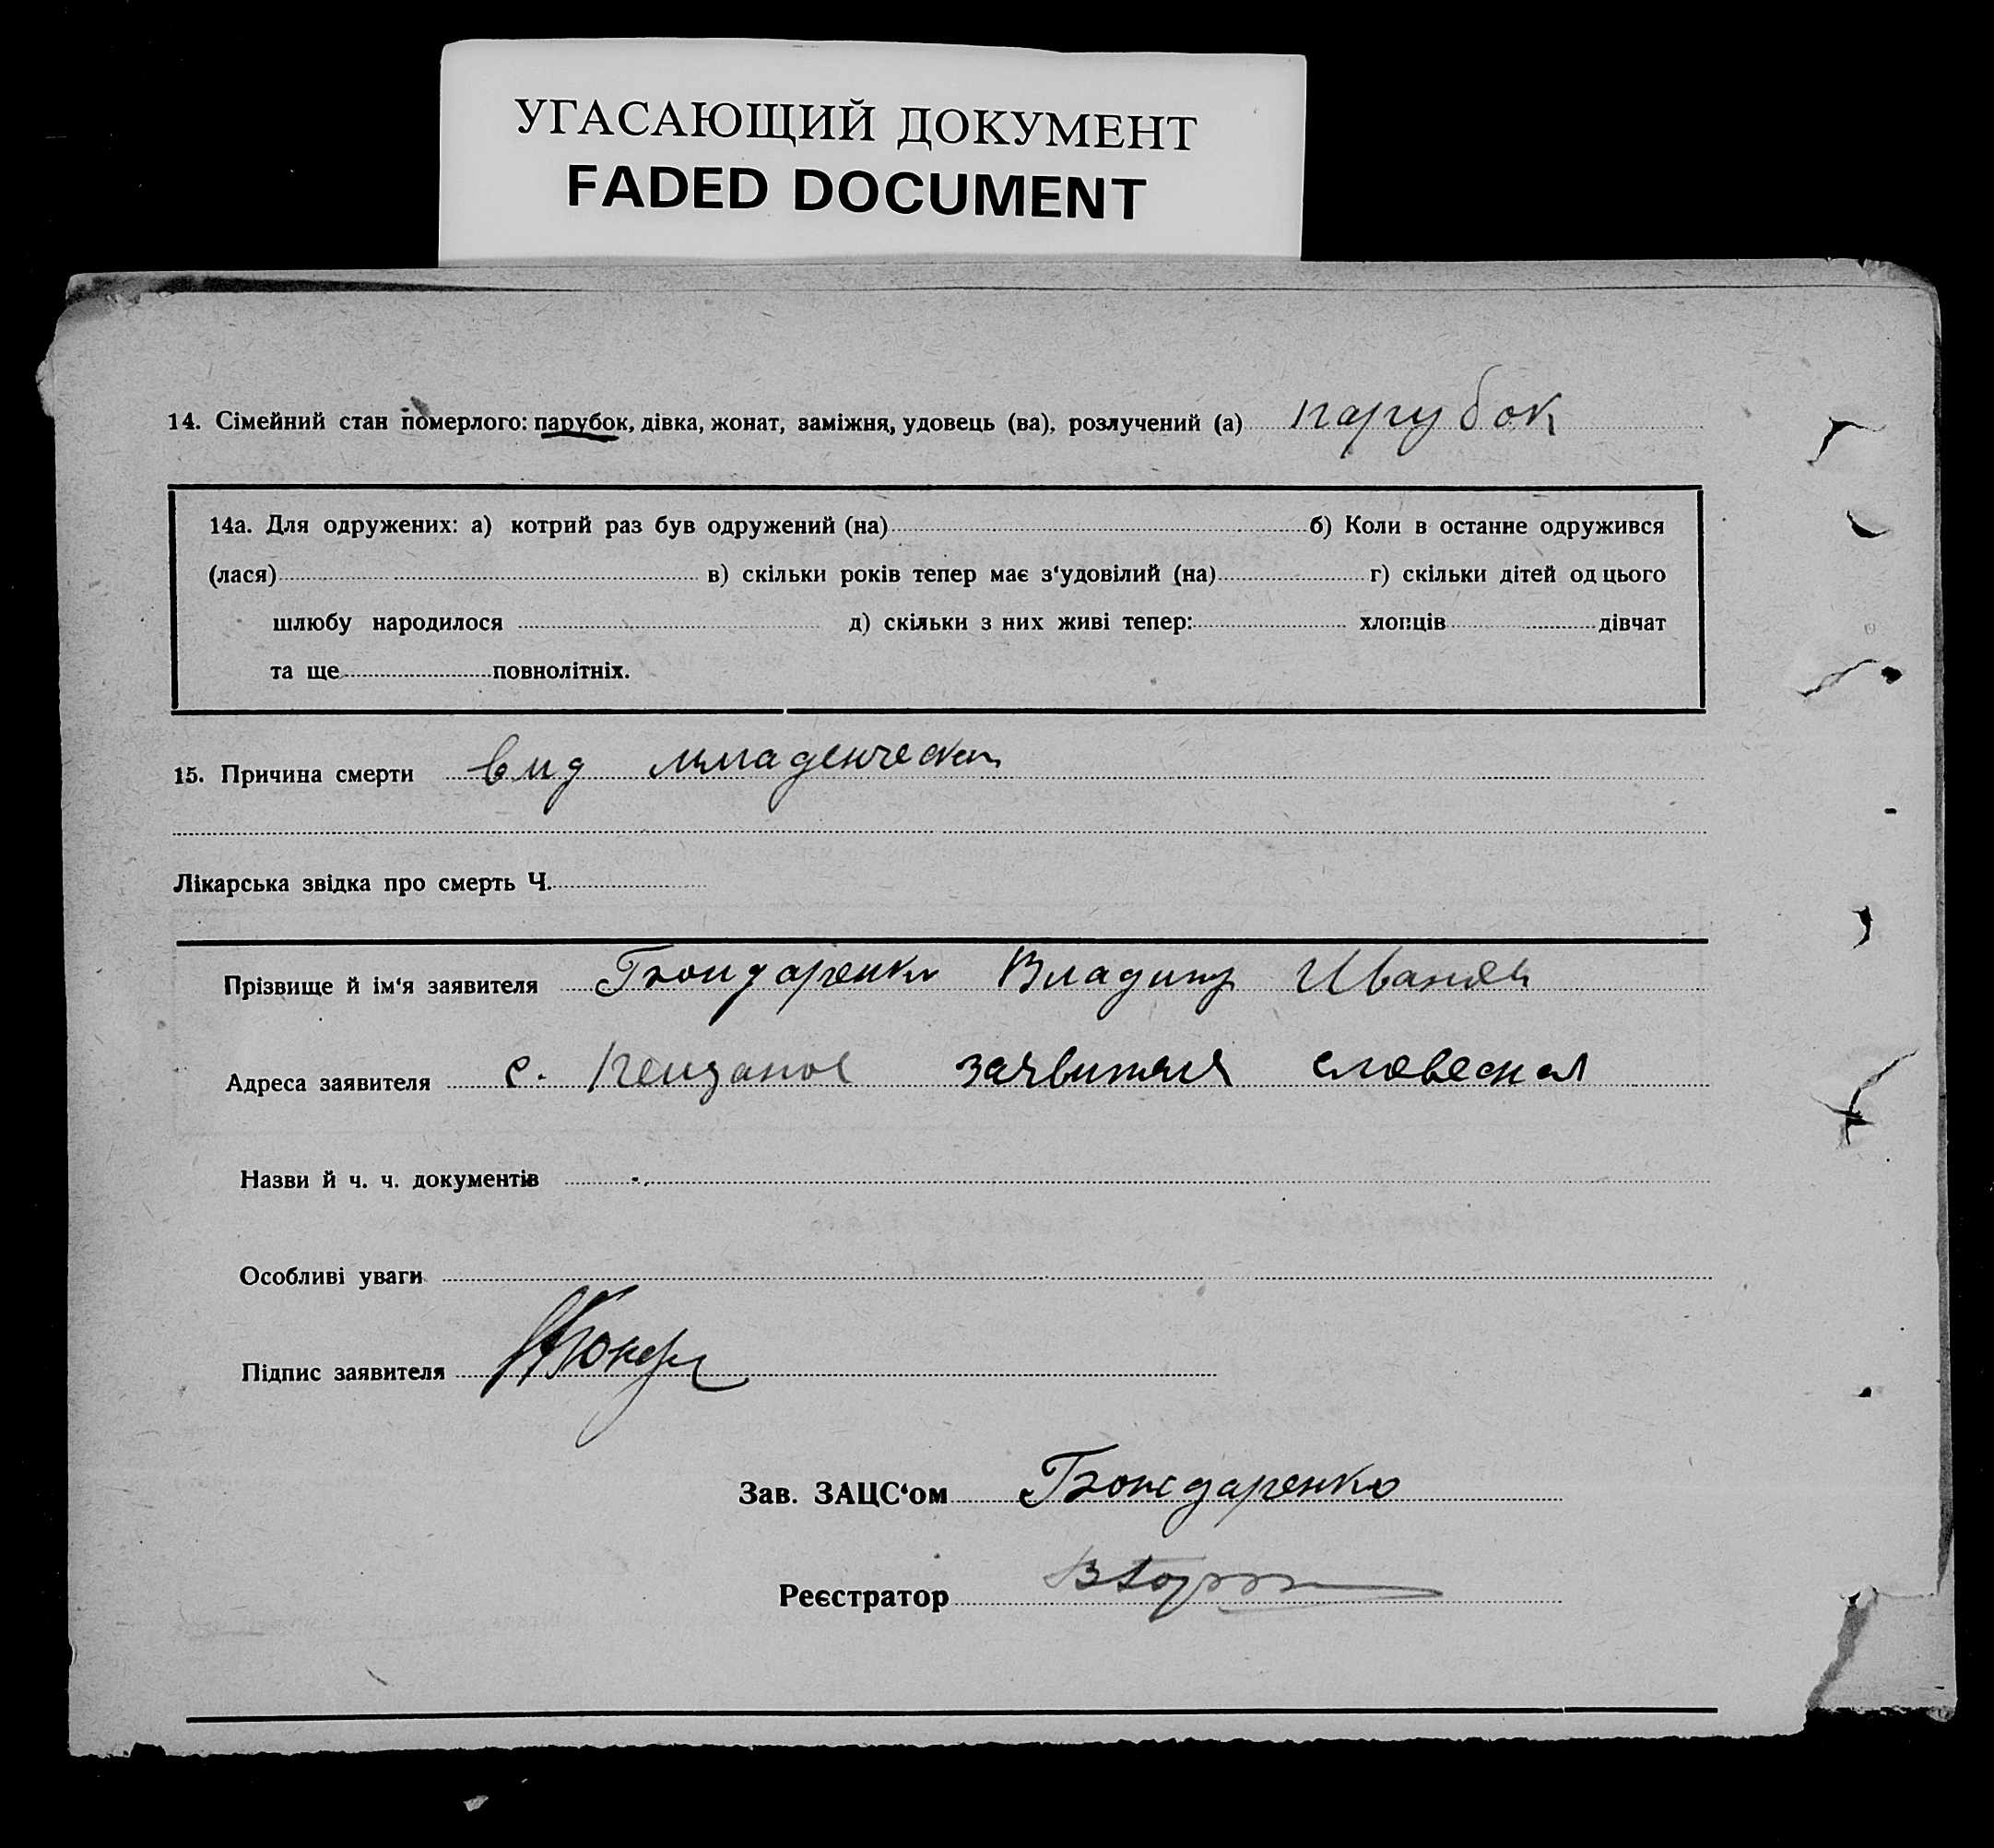 УГАСАЮЩИЙ ДОКУМЕНТ
FADED DOCUMENT
14. Сімейний стан померлого: парубок, дівка, жонат, заміжня, удовець (ва), розлучений (а) парубок
14а. Для одружених: а) котрий раз був одружений (на) б) Коли в останне одружився
(лася) в) скільки років тепер має з‘удовілий (на) г) скільки дітей од цього
шлюбу народилося д) скільки з них живі тепер: хлопців дівчат
та ще повнолітніх.
15. Причина смерти
Лікарська звідка про смерть Ч.
Прізвище й ім‘я заявителя Бондаренко Владимир
Адреса заявителя с. словесная
Назви й ч. ч. документів
Особливі уваги
Підпис заявителя
Зав. ЗАЦС‘ом Бондаренко
Реєстратор